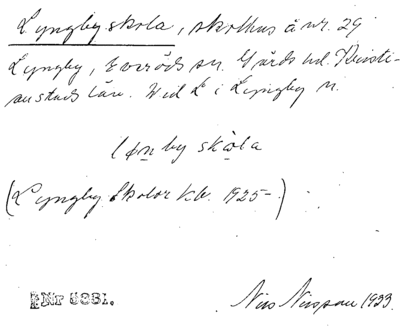 Lyngby skola, skolhus å nr. 29
Lyngby, Everöds sn. Gärds hd. Kristi-
anstads län. Vid L i Lyngby n.
løn by skòla
(Lyngby Skolor kb. 1925-)
Nr 5831. Nils Nilsson 1933.